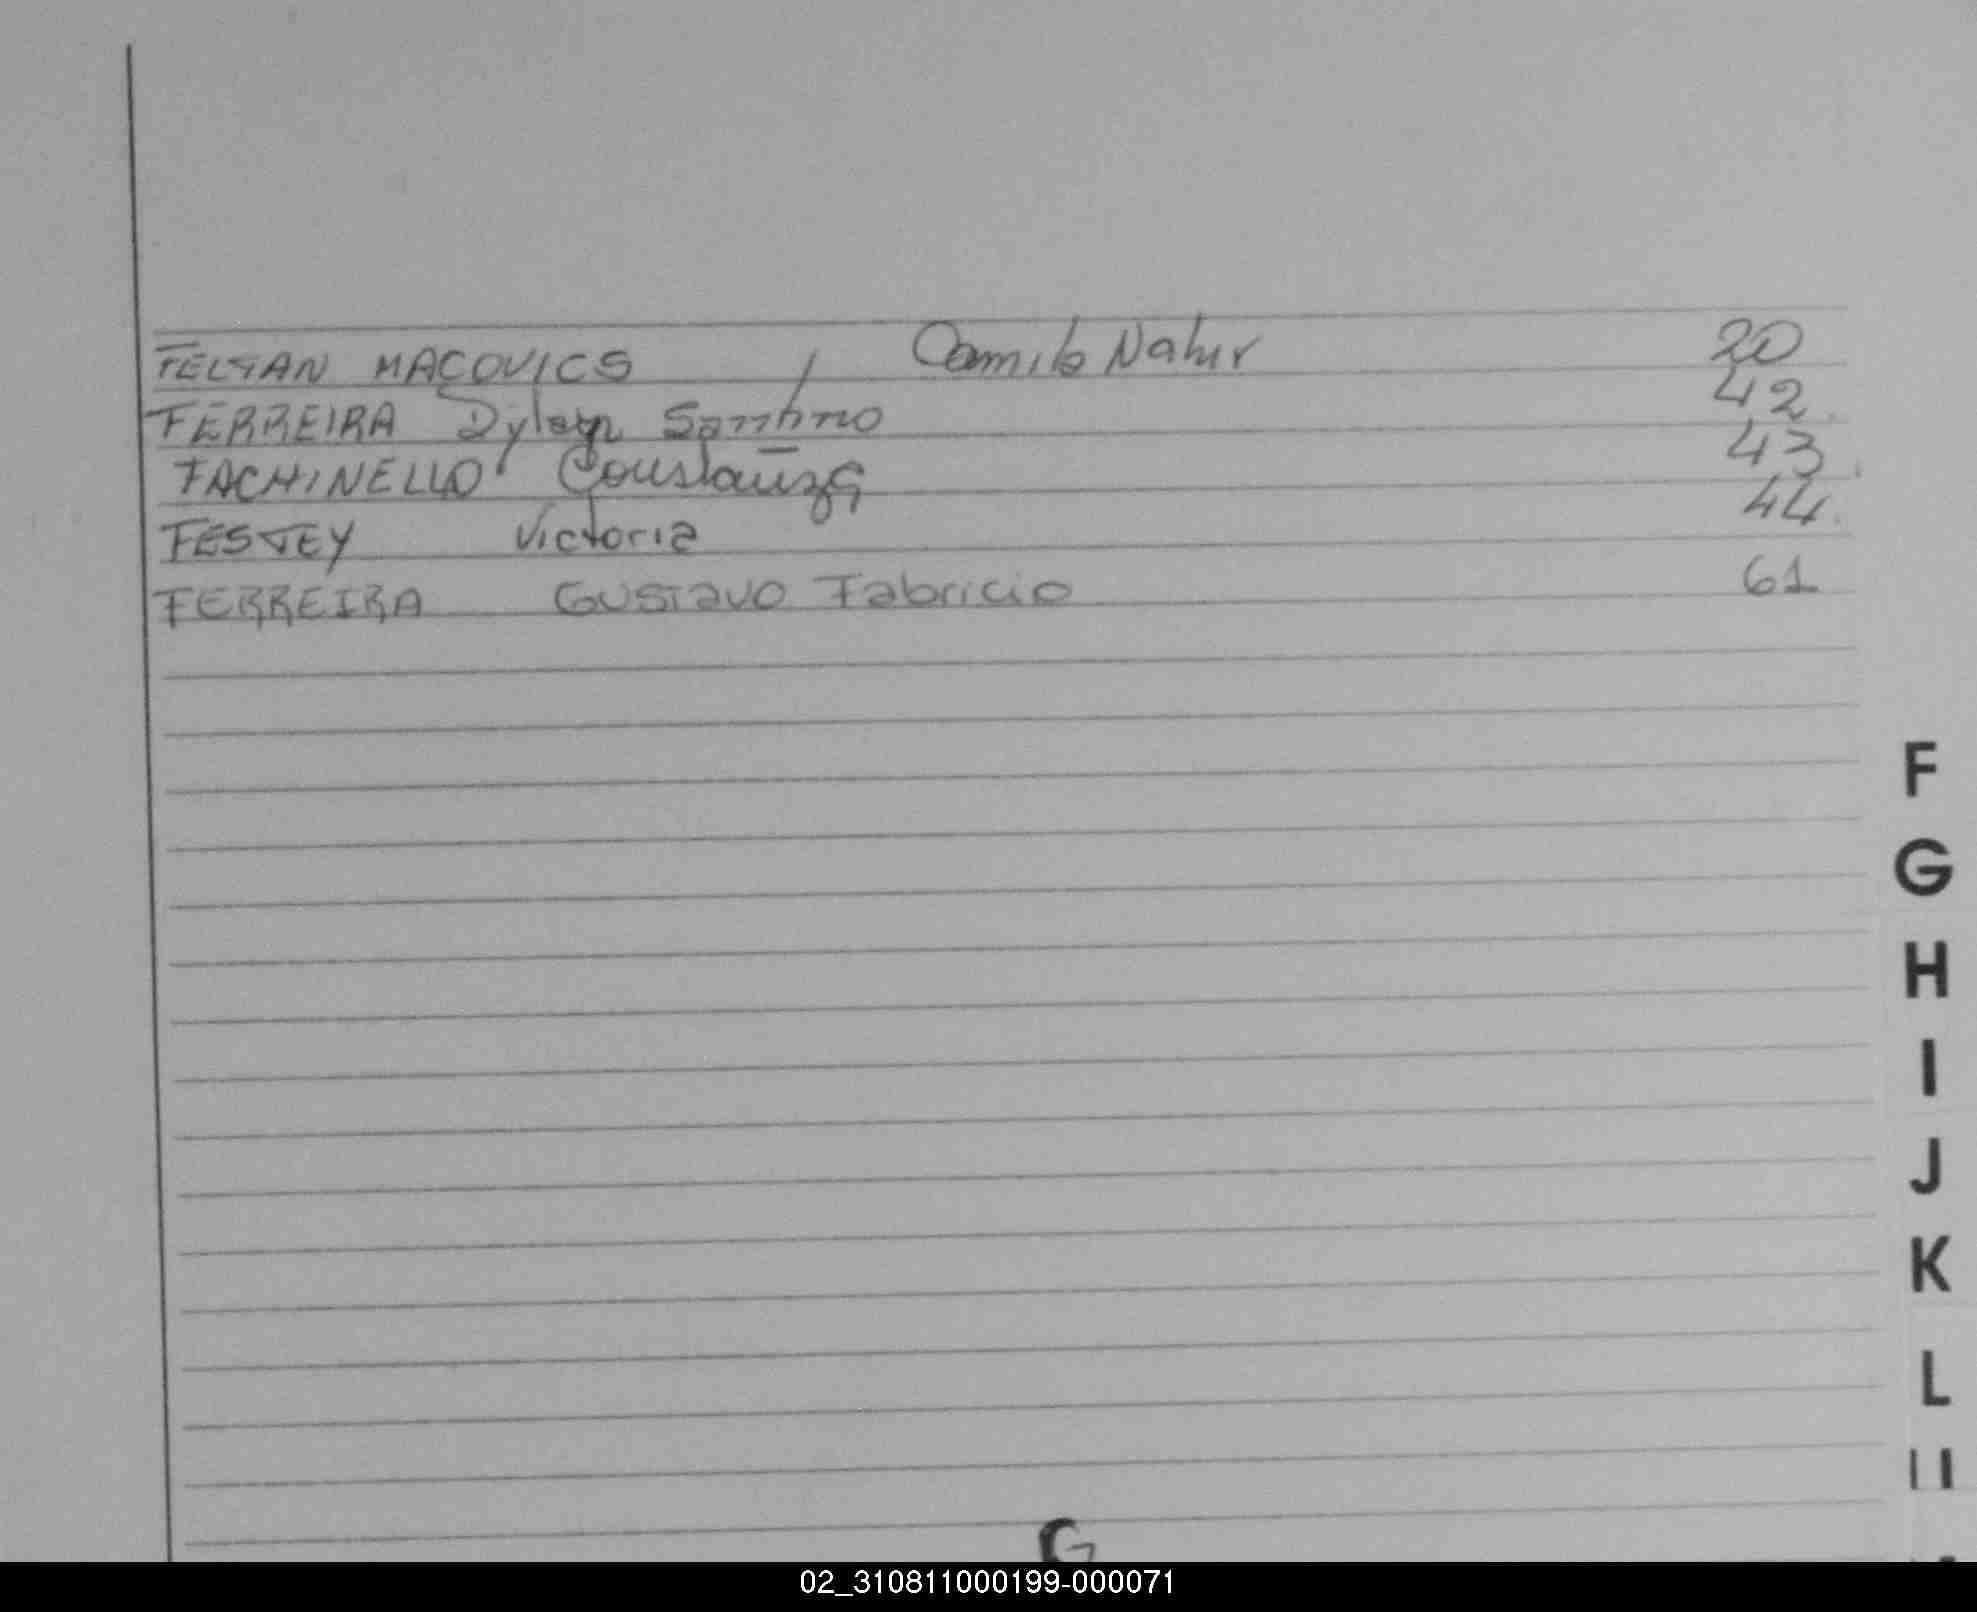 FELTAN MACOVICS / Camila Nahir 20
FERREIRA Dylan Santino 42.
FACHINELLO Constanza 43.
FESTEY Victoria 44.
FERREIRA Gustavo Fabricio 61
F
G
H
I
J
K
L
G
02_310811000199-000071